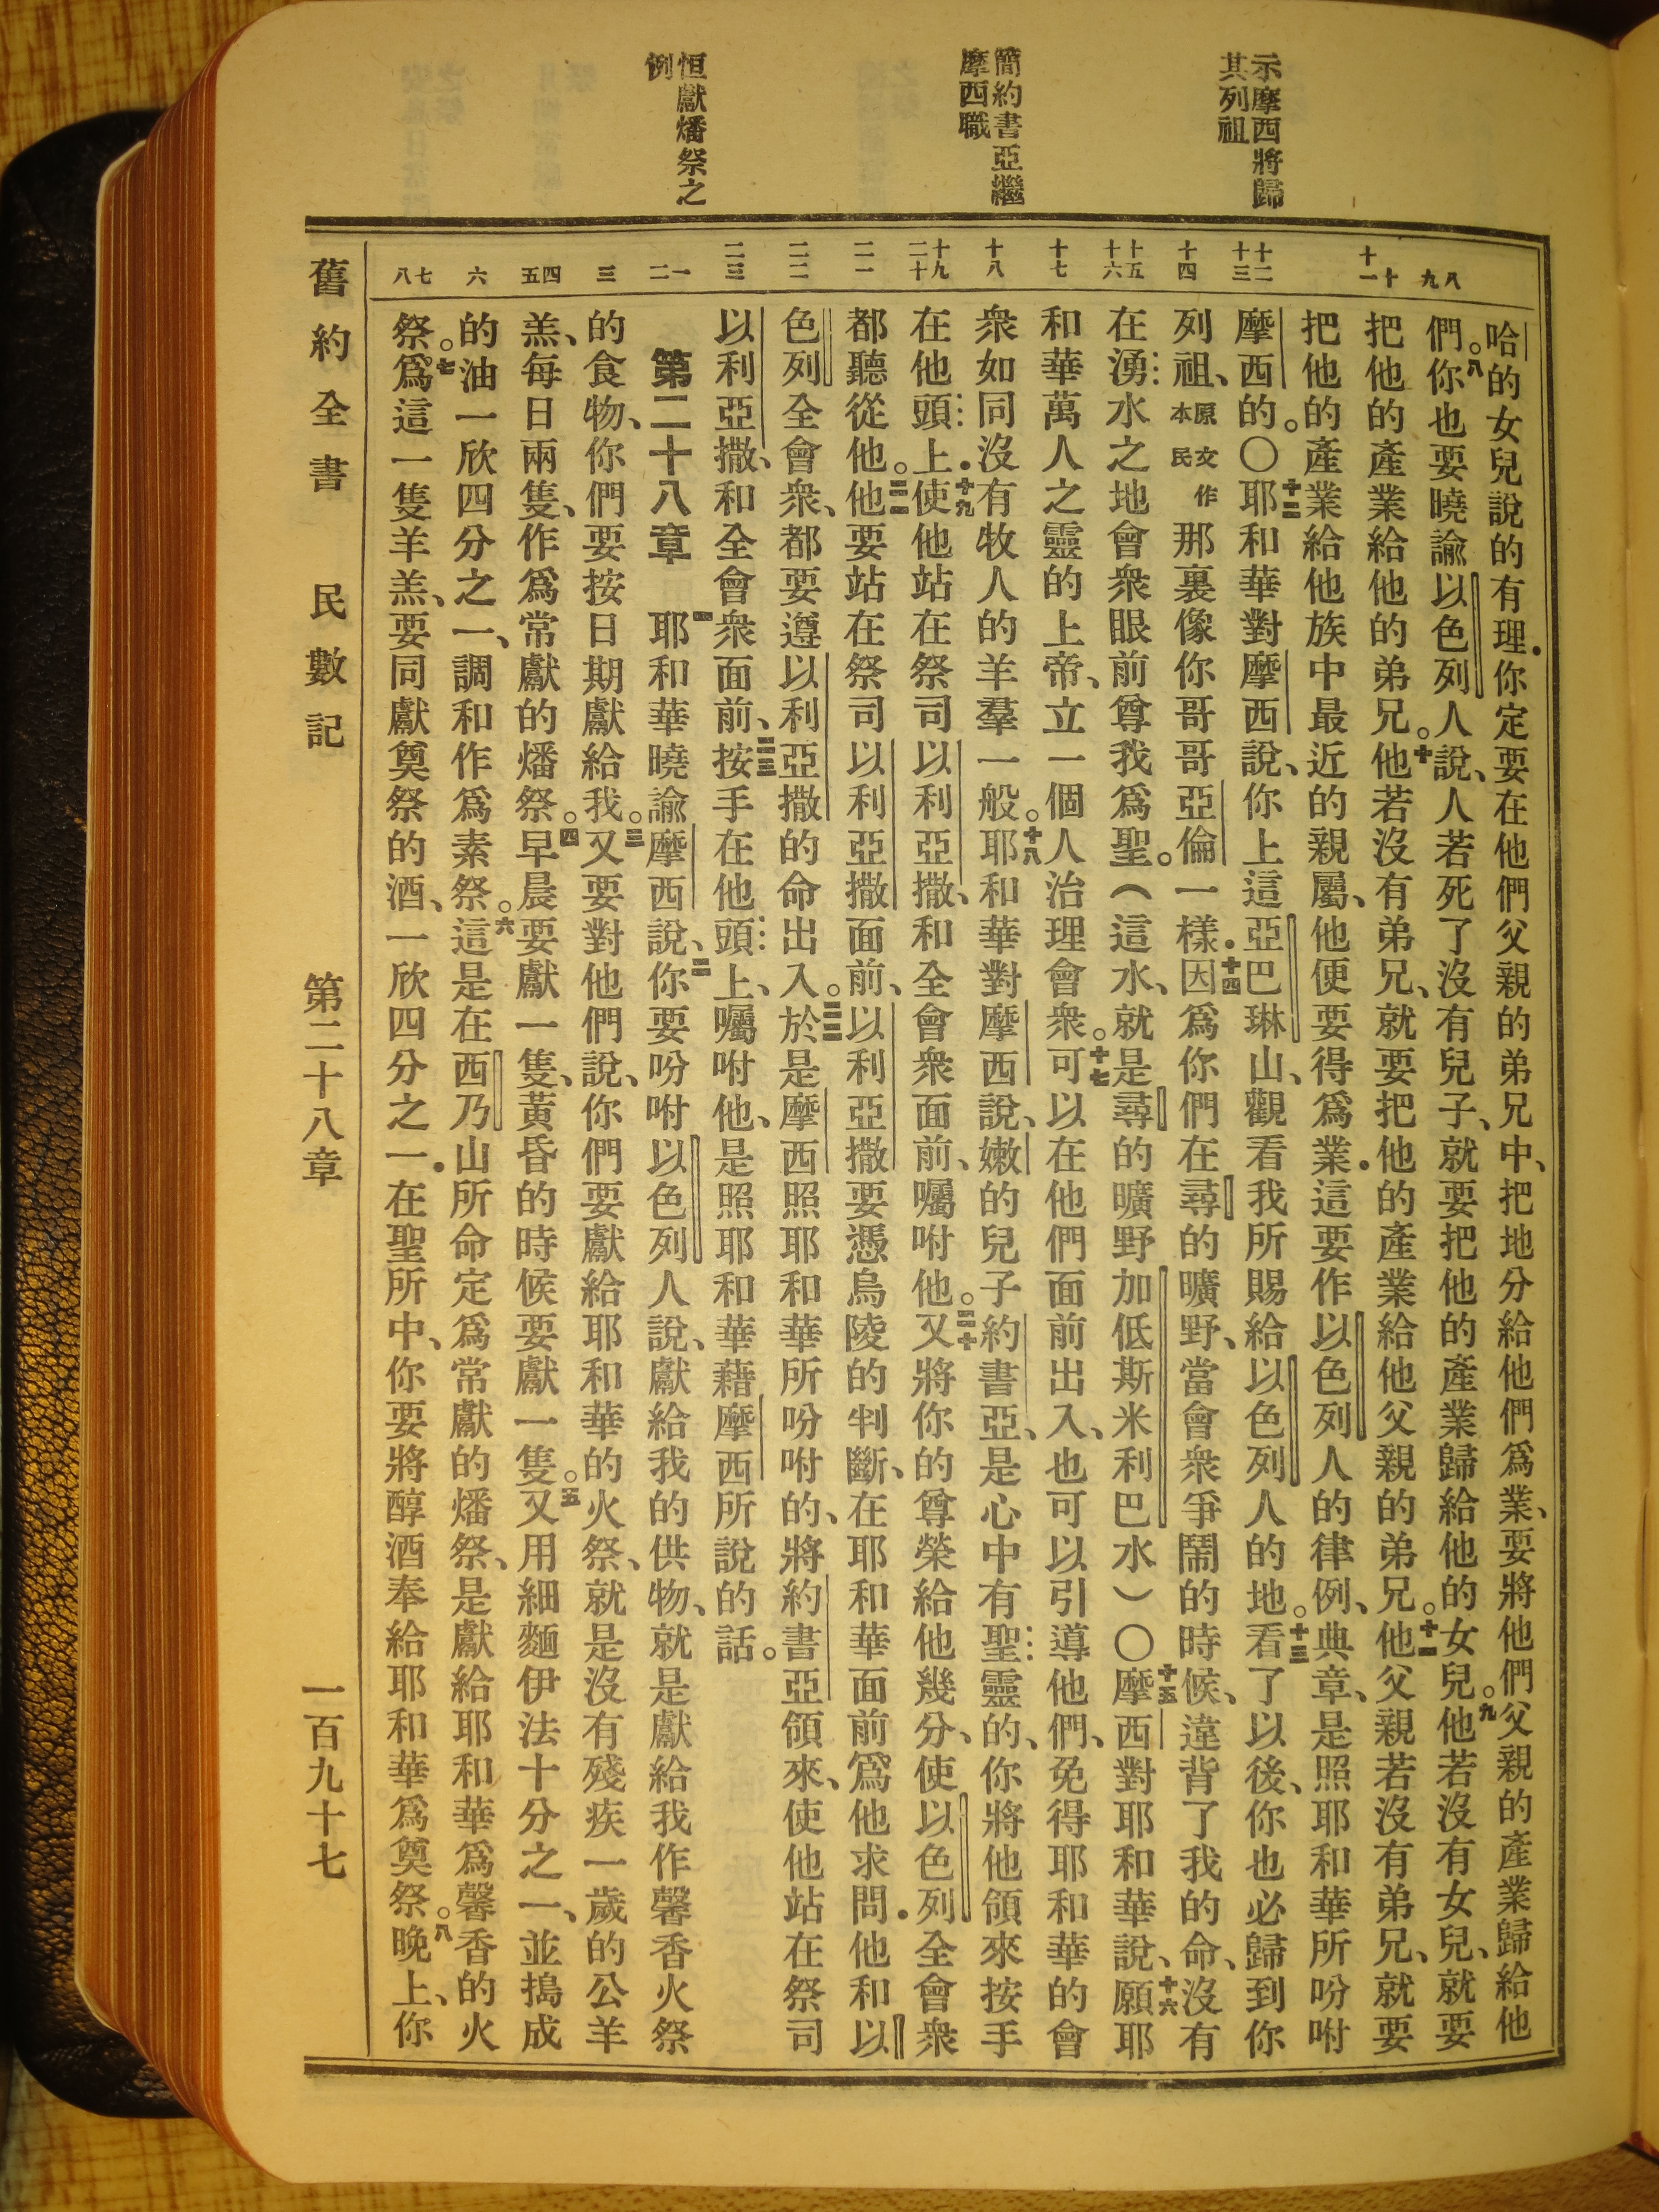 示摩西將歸
其列祖
簡約書亞繼
摩西職
恒獻燔祭之
例
八九
十十一
十二十三
十四
十五十六
十七
十八
十九二十
二一
二二
二三
一二
三
四五
六
七八
哈的女兒說的有理．你定要在他們父親的弟兄中、把地分給他們爲業、要將他們父親的產業歸給他
們。八你也要曉諭以色列人說、人若死了沒有兒子、就要把他的產業歸給他的女兒。九他若沒有女兒、就要
把他的產業給他的弟兄。十他若沒有弟兄、就要把他的產業給他父親的弟兄。十一他父親若沒有弟兄、就要
把他的產業給他族中最近的親屬、他便要得爲業．這要作以色列人的律例、典章、是照耶和華所吩咐
摩西的。〇十二耶和華對摩西說、你上這亞巴琳山、觀看我所賜給以色列人的地。十三看了以後、你也必歸到你
列祖、原文作本民那裏像你哥哥亞倫一樣．十四因爲你們在尋的曠野、當會衆爭鬧的時候、違背了我的命、沒有
在湧水之地會衆眼前尊我爲聖。（這水、就是尋的曠野加低斯米利巴水）〇十五摩西對耶和華說、十六願耶
和華萬人之靈的上帝、立一個人治理會衆。十七可以在他們面前出入、也可以引導他們、免得耶和華的會
衆如同沒有牧人的羊羣一般。十八耶和華對摩西說、嫩的兒子約書亞、是心中有聖靈的、你將他領來按手
在他頭上．十九使他站在祭司以利亞撒、和全會衆面前、囑咐他。二十又將你的尊榮給他幾分、使以色列全會衆
都聽從他。二一他要站在祭司以利亞撒面前、以利亞撒要憑烏陵的判斷、在耶和華面前爲他求問．他和以
色列全會衆、都要遵以利亞撒的命出入。二二於是摩西照耶和華所吩咐的、將約書亞領來、使他站在祭司
以利亞撒、和全會衆面前、二三按手在他頭上、囑咐他、是照耶和華藉摩西所說的話。
第二十八章 一耶和華曉諭摩西說、二你要吩咐以色列人說、獻給我的供物、就是獻給我作馨香火祭
的食物、你們要按日期獻給我。三又要對他們說、你們要獻給耶和華的火祭、就是沒有殘疾一歲的公羊
羔、每日兩隻、作爲常獻的燔祭。四早晨要獻一隻、黃昏的時候要獻一隻。五又用細麵伊法十分之一、並搗成
的油一欣四分之一、調和作爲素祭。六這是在西乃山所命定爲常獻的燔祭、是獻給耶和華爲馨香的火
祭。七爲這一隻羊羔、要同獻奠祭的酒、一欣四分之一．在聖所中、你要將醇酒奉給耶和華爲奠祭。八晚上、你
舊約全書 民數記 第二十八章 一百九十七